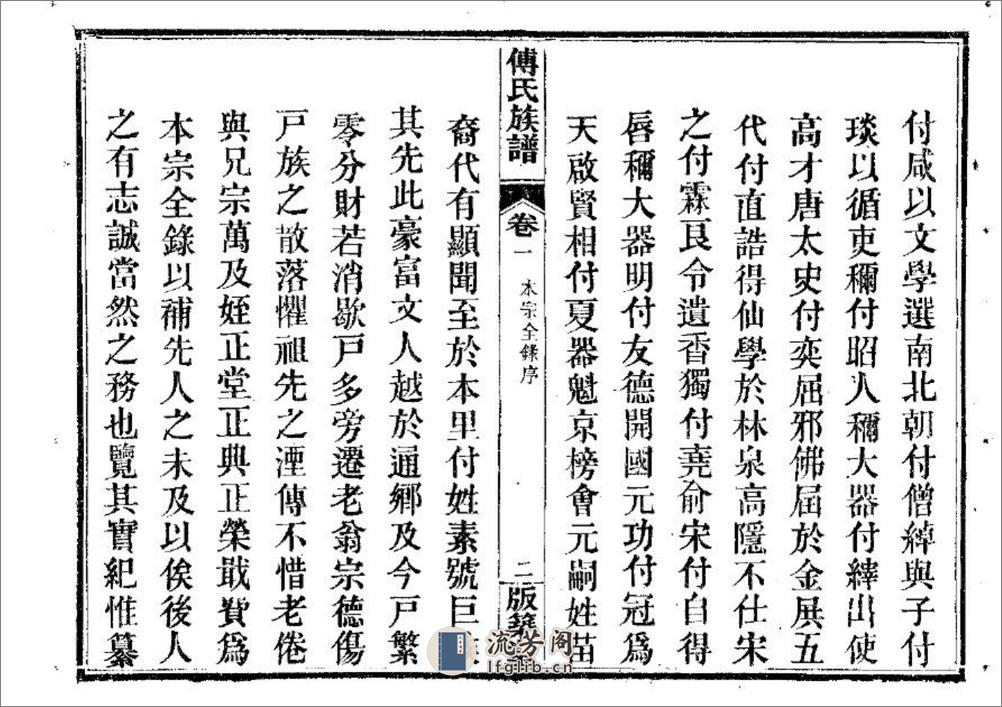 付咸以文學選南北朝付僧綽與子付
琰以循吏稱付昭人稱大器付縡出使
高才唐太史付奕屈邪佛屈於金展五
代付直誥得仙學於林泉高隱不仕宋
之付霖艮令遺香獨付堯俞宋付自得
唇稱大器明付友德開國元功付冠爲
天啟賢相付夏器魁京榜會元嗣姓苗
傅氏族譜
卷一
本宗全錄序
二
版築
裔代有顯聞至於本里付姓素號巨
其先此豪富文人越於通鄉及今戸繁
零分財若消歇戸多旁遷老翁宗德傷
戸族之散落懼祖先之湮傳不惜老倦
與兄宗萬及姪正堂正典正榮戢費爲
本宗全錄以補先人之未及以俟後人
之有志誠當然之務也覽其實紀惟纂
流芳阁
lfglib.cn